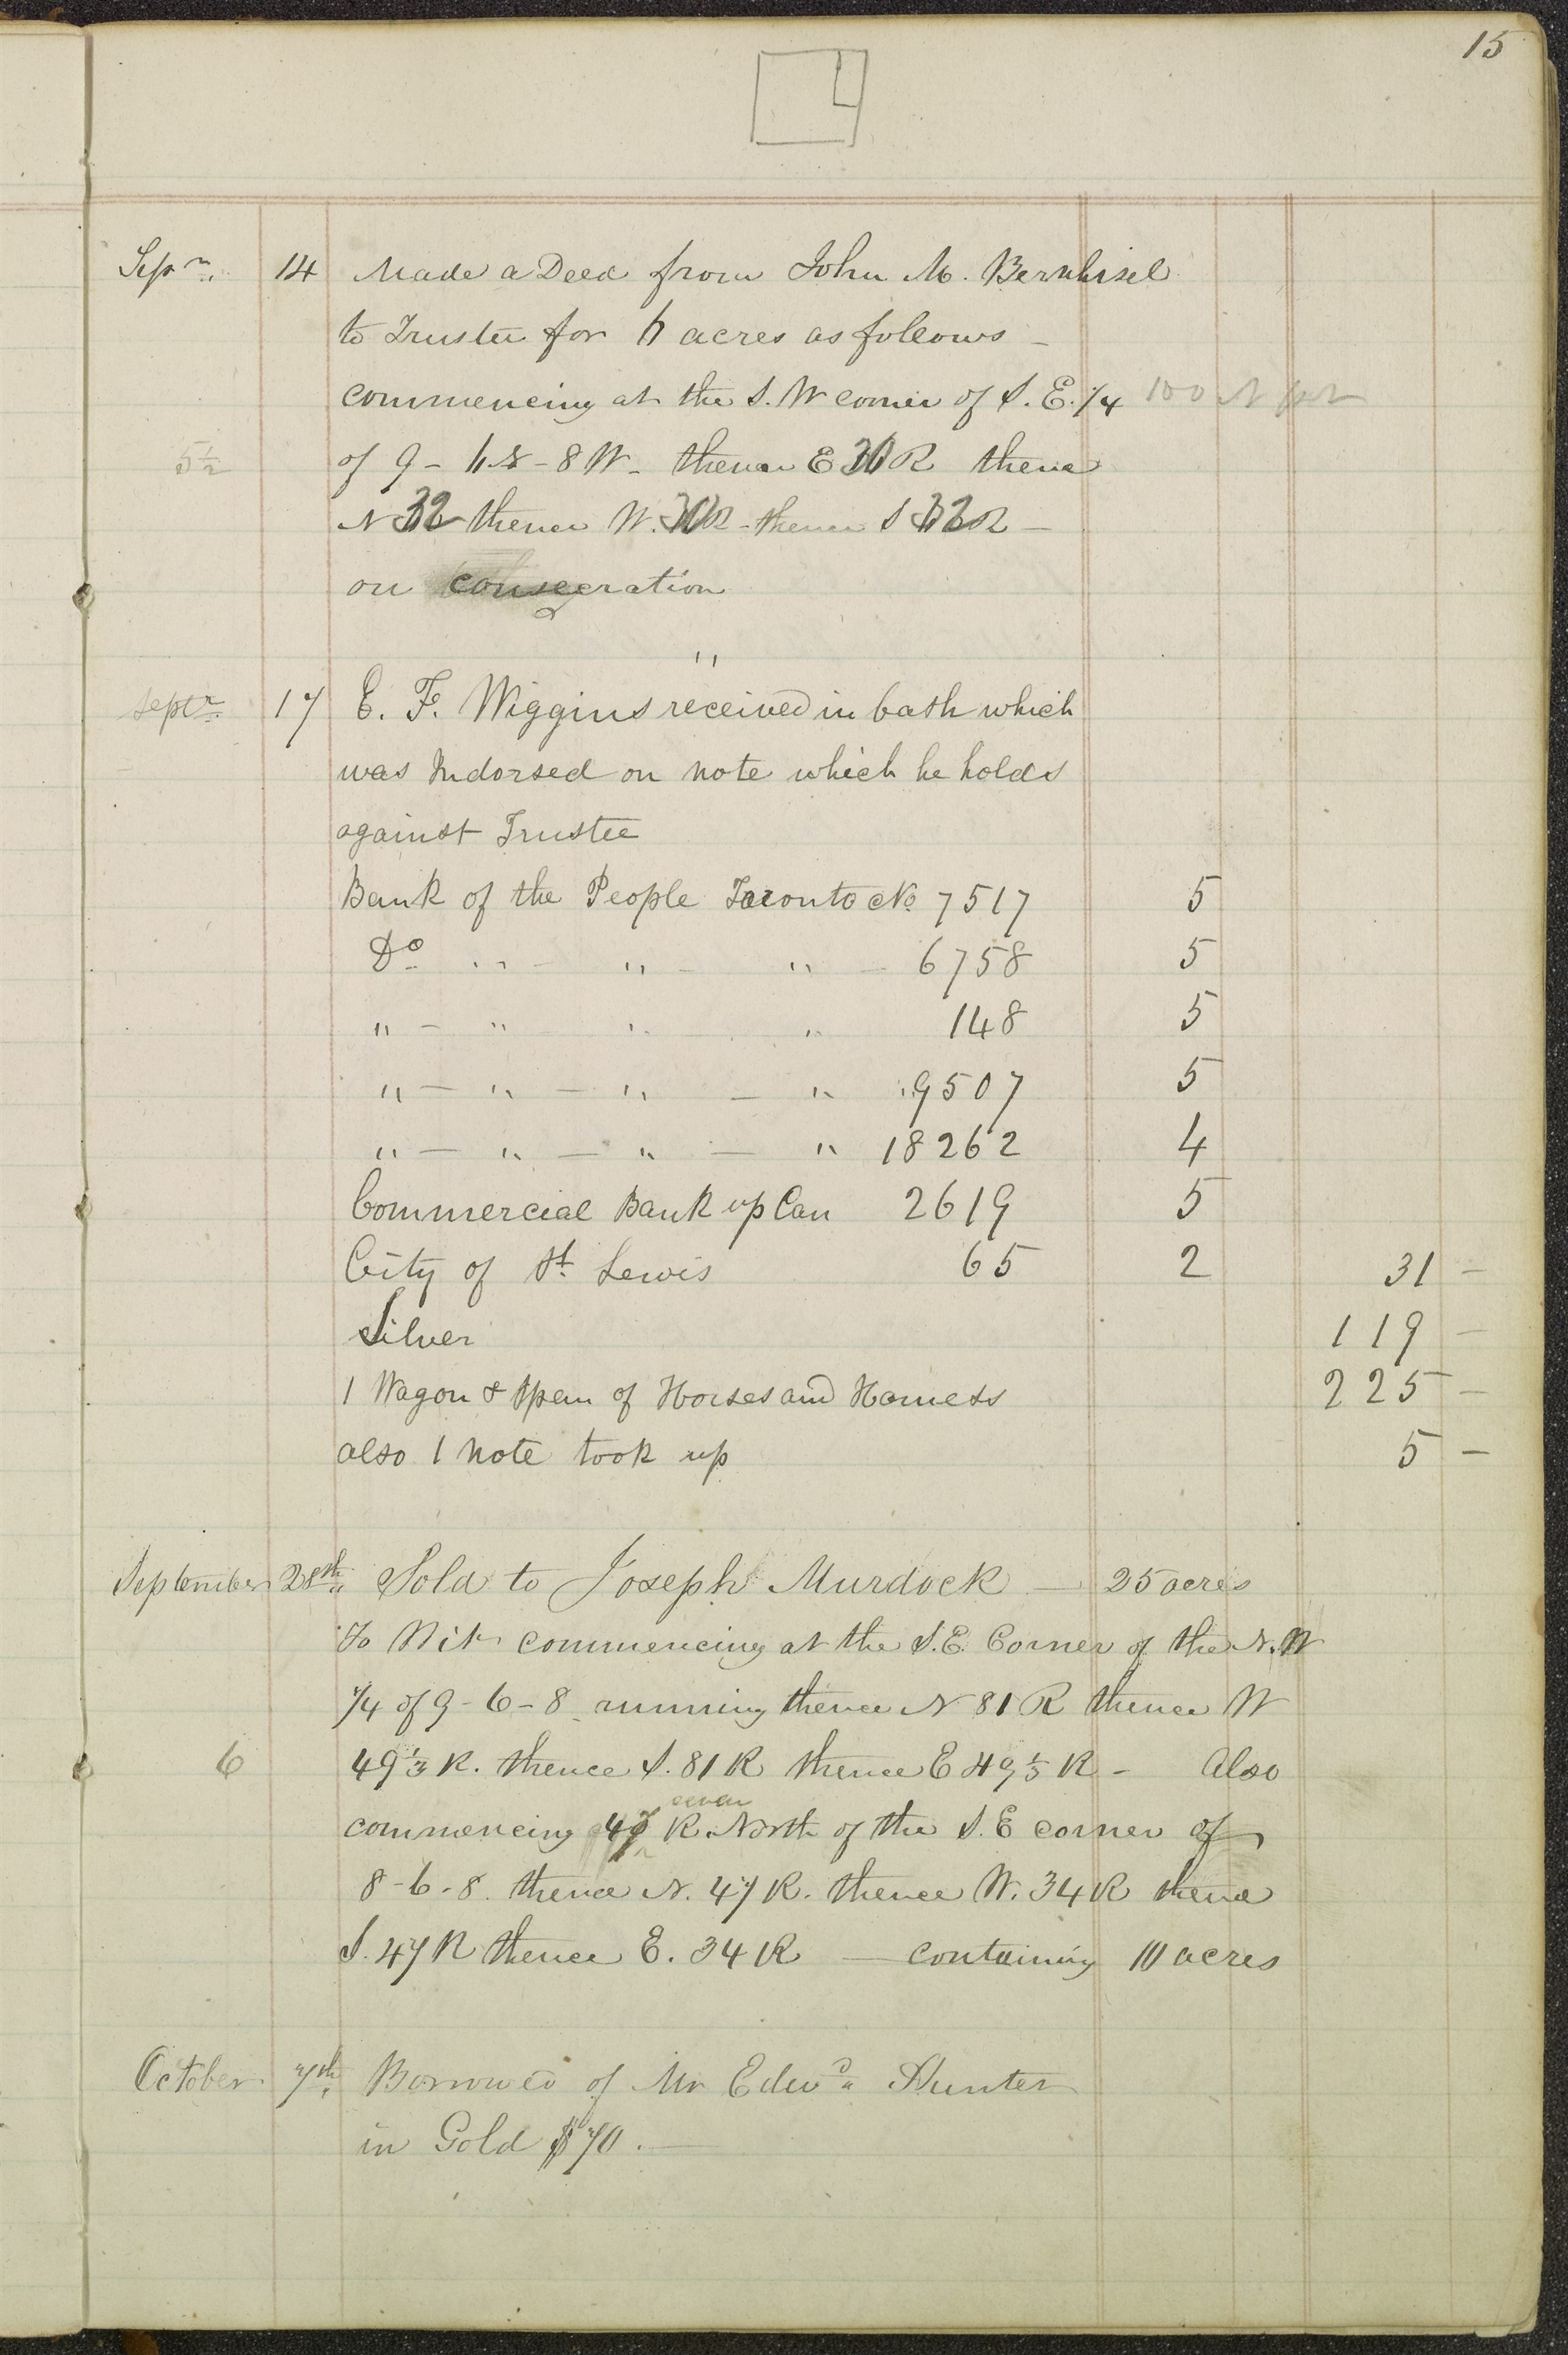 15
Sepr. 14 Made a Deed from John M. Bernhisel
to Trustee for 6 acres as follows –
commencing at the S. W corner of S. E. 1/4 100
5½ of 9 – 6 N – 8 W – thence E 30 R thence
N 32 thence W. 30 R – thence S 32 R –
on consecration
"
Septr. 17 E. F. Wiggins received in Cash which
was Indorsed on note which he holds
against Trustee
Bank of the People Toronto No. 7517 5
Do " – " – " – 6758 5
" – " " " 148 5
" – " – " – " 9507 5
" – " – " – " 18262 4
Commercial Bank up Can 2619 5
City of St. Lewis 65 2 31 –
Silver 119 –
1 Wagon & Span of Horses and Harness 225 –
also 1 note took up 5 –
September 28th. Sold to Joseph Murdock — 25 acres
To Wit commencing at the S.E. Corner of the N. W
1/4 of 9 – 6 – 8 running thence N 81 R thence W
6 49⅓ R. thence S. 81 R thence E 49⅓ R – Also
commencing 47 seven R. North of the S. E corner of
8 – 6 – 8. thence N. 47 R. thence W. 34 R thence
S. 47 R thence E. 34 R — containing 10 acres
October 7th. Borrowed of Mr Edwd. Hunter
in Gold $70. —